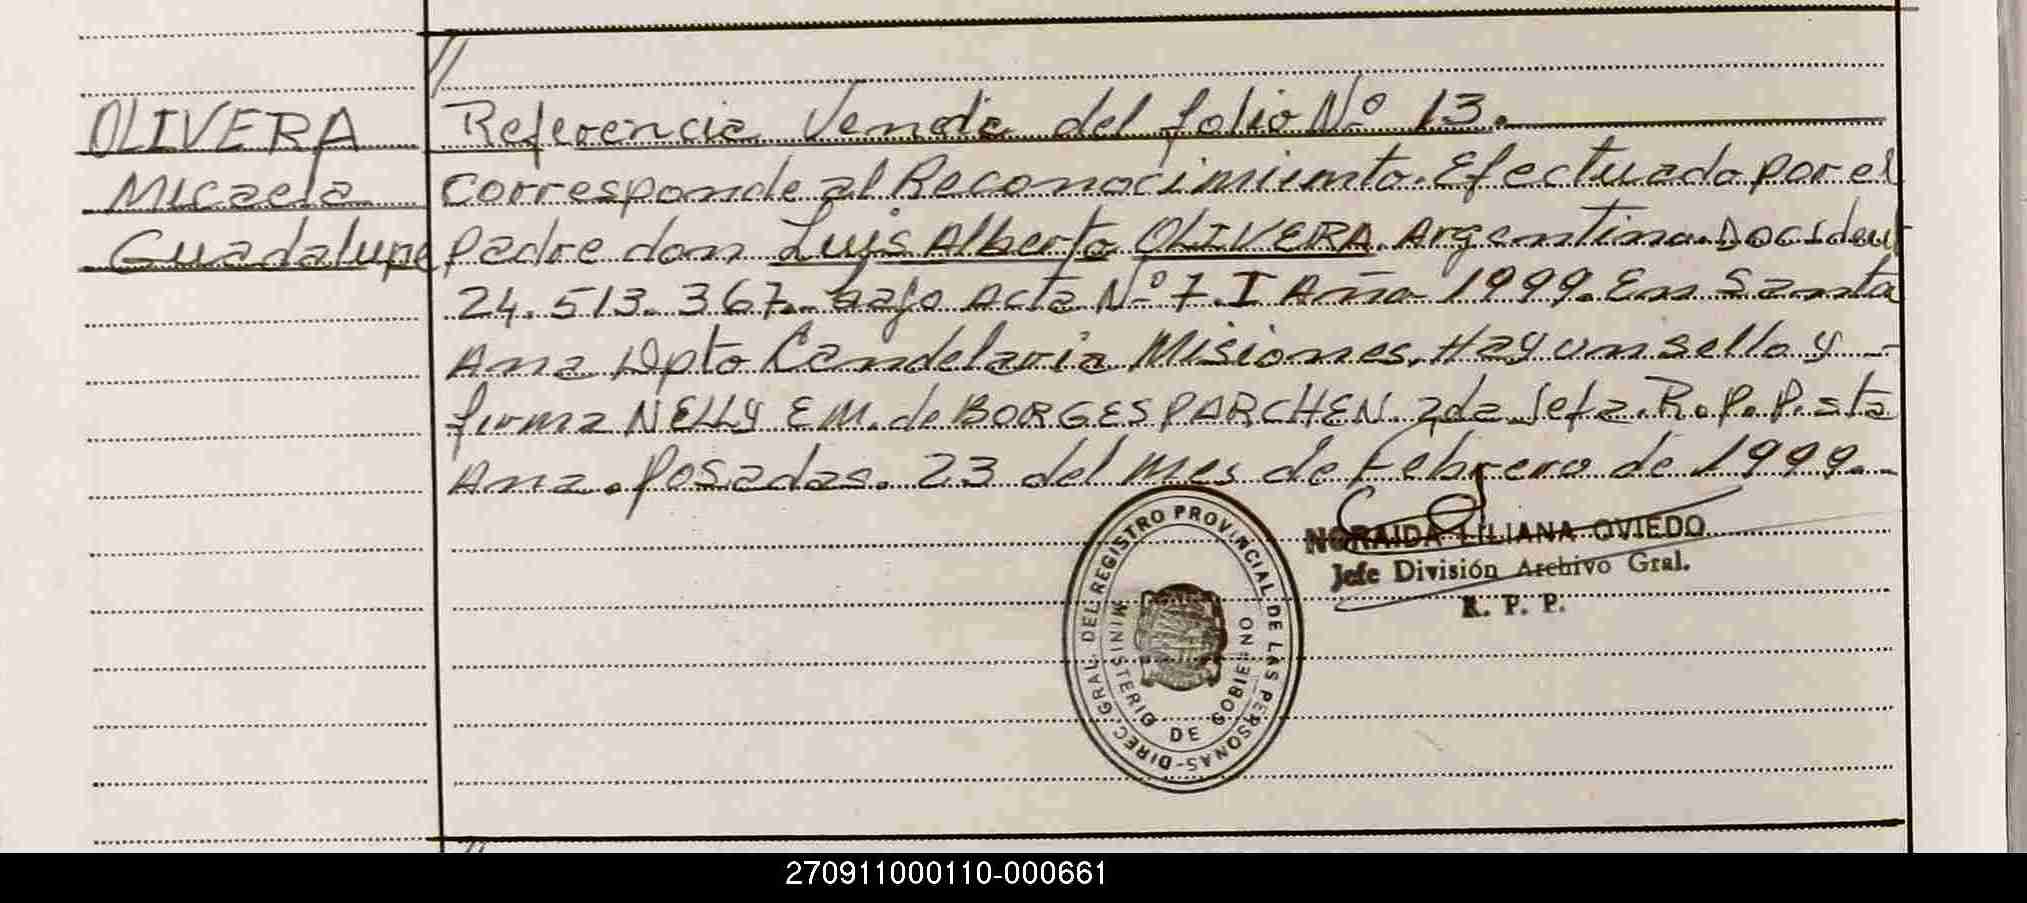 OLIVERA
Micaela
Guadalupe
//
Referencia Venda del folio Nº 13.
Corresponde al Reconocimiento. Efectuado por el
padre don Luis Alberto OLIVERA. Argentino. Doc. ident
24.513.367. bajo Acta Nº 7. I Año 1999. En Santa
Ana Dpto Candelaria Misiones. Hay un sello y -
firma NELLY E M. de BORGES PARCHEN. 2da Jefa. R.P.P. sta
Ana. Posadas. 23 del mes de Febrero de 1999.-
NORAIDA LILIANA OVIEDO
Jefe División Archivo Gral.
R. P. P.
DIREC. GRAL. DEL REGISTRO PROVINCIAL DE LAS PERSONAS-
MINISTERIO DE GOBIERNO
270911000110-000661